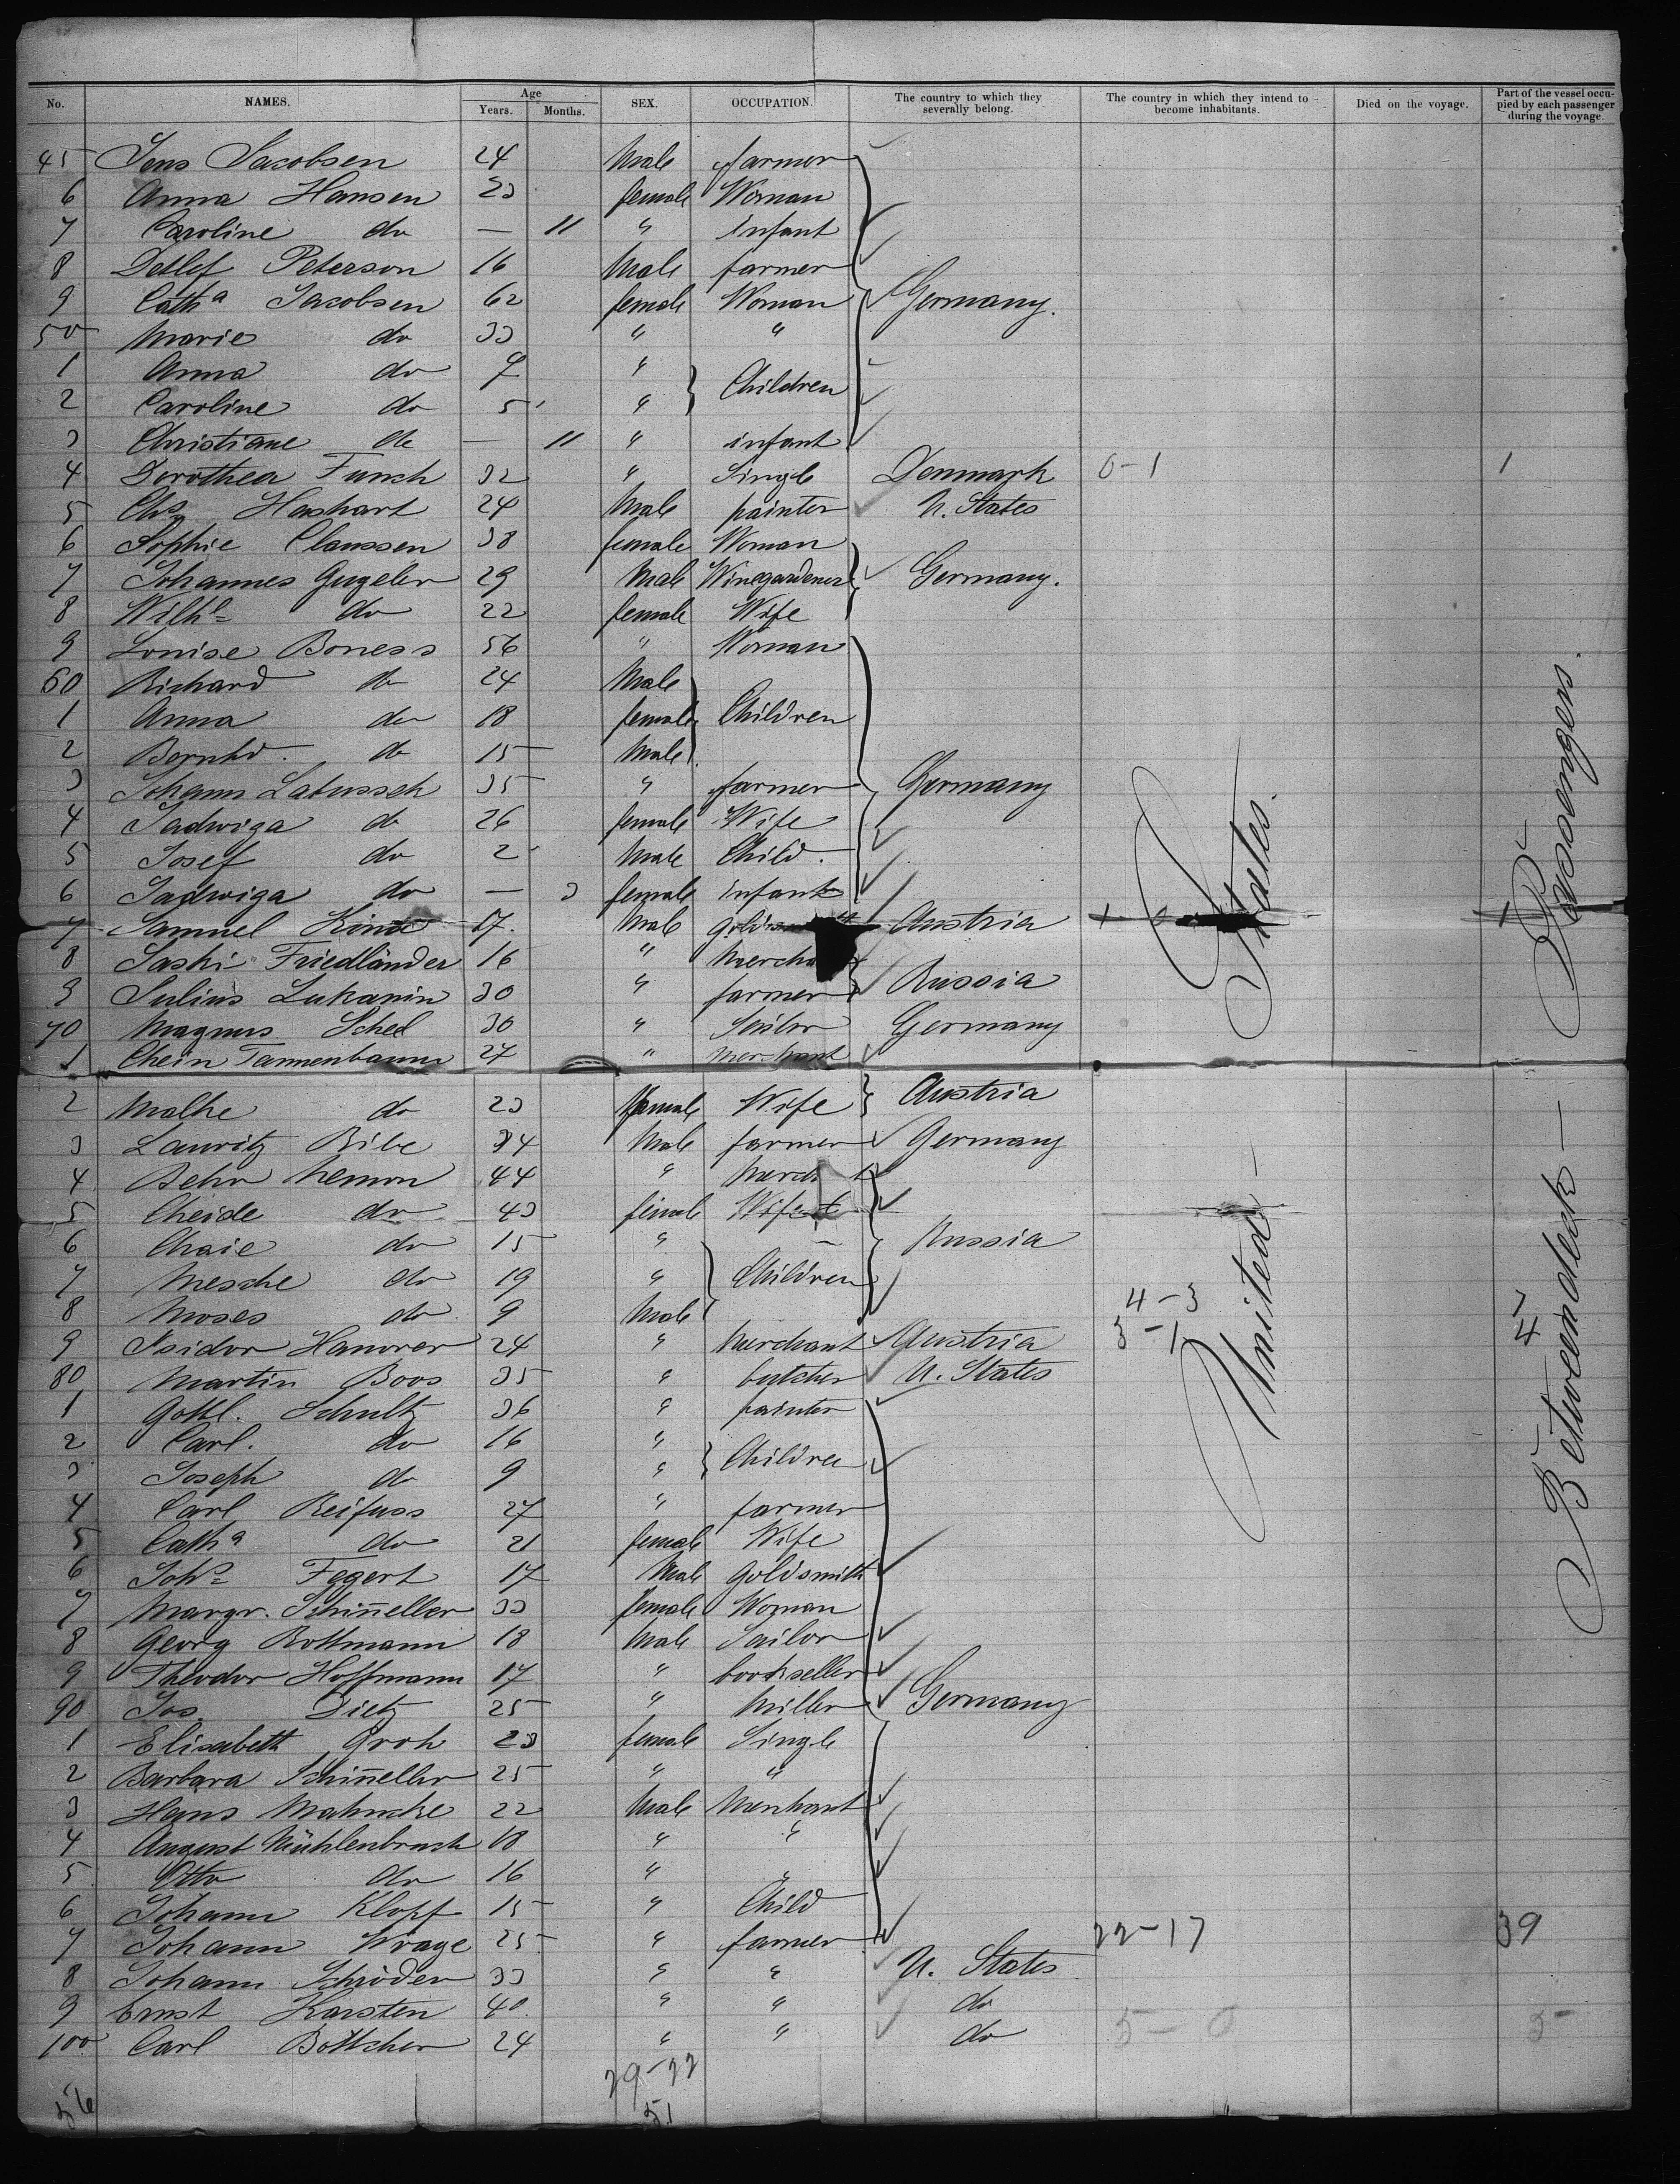 No. NAMES. Age Years. Months. SEX. OCCUPATION. The country to which they severally belong. The country in which they intend to become inhabitants. Died on the voyage. Part of the vessel occupied by each passenger during the voyage.
45 Jens Jacobsen 24 Male farmer
6 Anna Hansen 23 female Woman
7 Caroline do — 11 " infant
8 Detlef Peterson 16 Male farmer
9 Cath^a Jacobsen 62 female Woman Germany.
50 Marie do 33 " "
1 Anna do 7 " Children
2 Caroline do 5 "
3 Christiane do — 11 " infant
4 Dorothea Funch 32 " Single Denmark 0-1 1
5 Chs Hashart 24 Male painter U. States
6 Sophie Claussen 38 female Woman
7 Johannes Gugeler 29 Male Winegardener Germany.
8 Wilh^e do 22 female Wife
9 Louise Boness 56 " Woman
60 Richard do 24 Male
1 Anna do 18 female Children
2 Bernhd. do 15 Male
3 Johann Labussek 35 " farmer Germany
4 Jadwiga do 26 female Wife
5 Josef do 2 Male Child.
6 Jadwiga do — 3 female infant
7 Samuel 17. Male Austria
8 Saski Friedländer 16 " Mercha
9 Julius Lukanin 30 " farmer Russia
70 Magnus Schel 30 " Sailor Germany
1 Chein Tannenbaum 27 " merchant
2 Malke do 23 female Wife Austria
3 Lauritz Bibe 34 Male farmer Germany
4 Behr Nemon 44 "
5 Cheide do 43 female Wife
6 Chaie do 15 " Russia
7 Mesche do 19 " Children
8 Moses do 9 Male 4-3 7
9 Isidor Hanover 24 " Merchant Austria 3-1 4
80 Martin Boos 35 " butcher U. States
1 Gottl. Schultz 36 " painter
2 Carl. do 16 " Children
3 Joseph do 9 "
4 Carl Reifuss 27 " farmer
5 Cath^a do 21 female Wife
6 Joh^s Fegert 17 Male Goldsmith
7 Margr. Schin̄eller 33 female Woman
8 Georg Rottmann 18 Male Sailor
9 Theodor Hoffmann 17 " bookseller
90 Jos. Dietz 25 " Miller Germany
1 Elisabeth Groh 23 female Single
2 Barbara Schin̄eller 25 " "
3 Hans Mahncke 22 Male Merchant
4 August Mühlenbruch 18 " "
5 Otto do 16 " "
6 Johann Klopf 15 " Child
7 Johann Wrage 25 " farmer 22-17 39
8 Johann Schröder 33 " " U. States
9 Ernst Karsten 40. " " do
100 Carl Böttcher 24 " " do 5-0 5
29-22
56 51
United States.
Betweendeck Passengers.